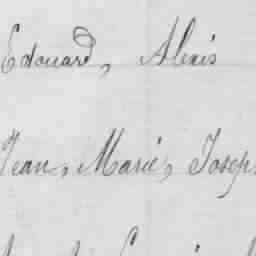 Edouard, Alexis
Jean, Marie, Joseph